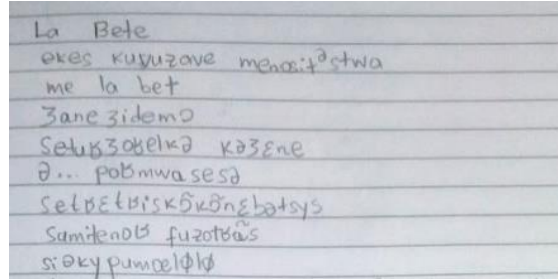 La Bete
ekes kuvuzave menasitəstwa
me la bet
ʒane ʒidemɔ
Setuʁʒoʁelkə kəʒɛne
ə... poʁmwasesə
setʁɛtʁiskɔ̃kɔ̃nɛbətsys
samitenoʁ fuzotʁɑ̃s